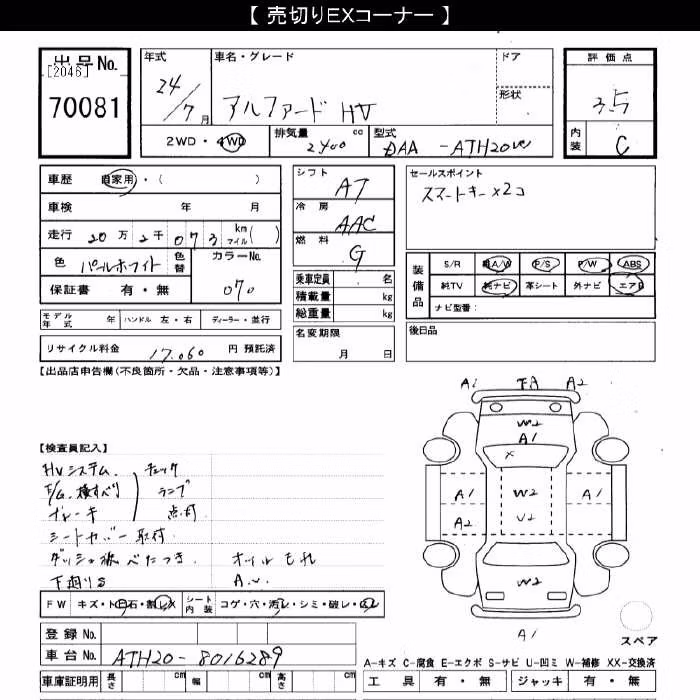 【 売切りEXコーナー 】
出品No.
[2046]
70081
年式 24/7月
車名・グレード アルファード HV
ドア
形状
評価点 3.5
内装 C
2WD・4WD
排気量 2400 cc
型式 DAA-ATH20W
車歴 自家用・( )
車検 年 月
走行 20万2千073 km マイル( )
色 パールホワイト 色替
カラーNo. 070
保証書 有・無
シフト AT
冷房 AAC
燃料 G
乗車定員 名
積載量 kg
総重量 kg
名変期限 月 日
セールスポイント
スマートキー×2コ
装備品
S/R 純A/W P/S P/W ABS
純TV 純ナビ 革シート 外ナビ エアB
ナビ型番:
後日品
モデル年式 年 ハンドル 左・右 ディーラー・並行
リサイクル料金 17,060 円 預託済
【出品店申告欄(不良箇所・欠品・注意事項等)】
【検査員記入】
HVシステム. チェック
E/G. 横すべり ランプ
ブレーキ 点灯
シートカバー取付
ダッシュ板べたつき オイルもれ
下廻りS
FW キズ・トビ石・割レX
シート内装 コゲ・穴・汚レ・シミ・破レ・スレ
登録No.
車台No. ATH20-8016289
車庫証明用 長さ cm 幅 cm 高さ cm
A1 FA A2
W2
A1
X
A1 W2 A1
A2 U2
W2
A1
スペア
A-キズ C-腐食 E-エクボ S-サビ U-凹ミ W-補修 XX-交換済
工具 有・無 ジャッキ 有・無